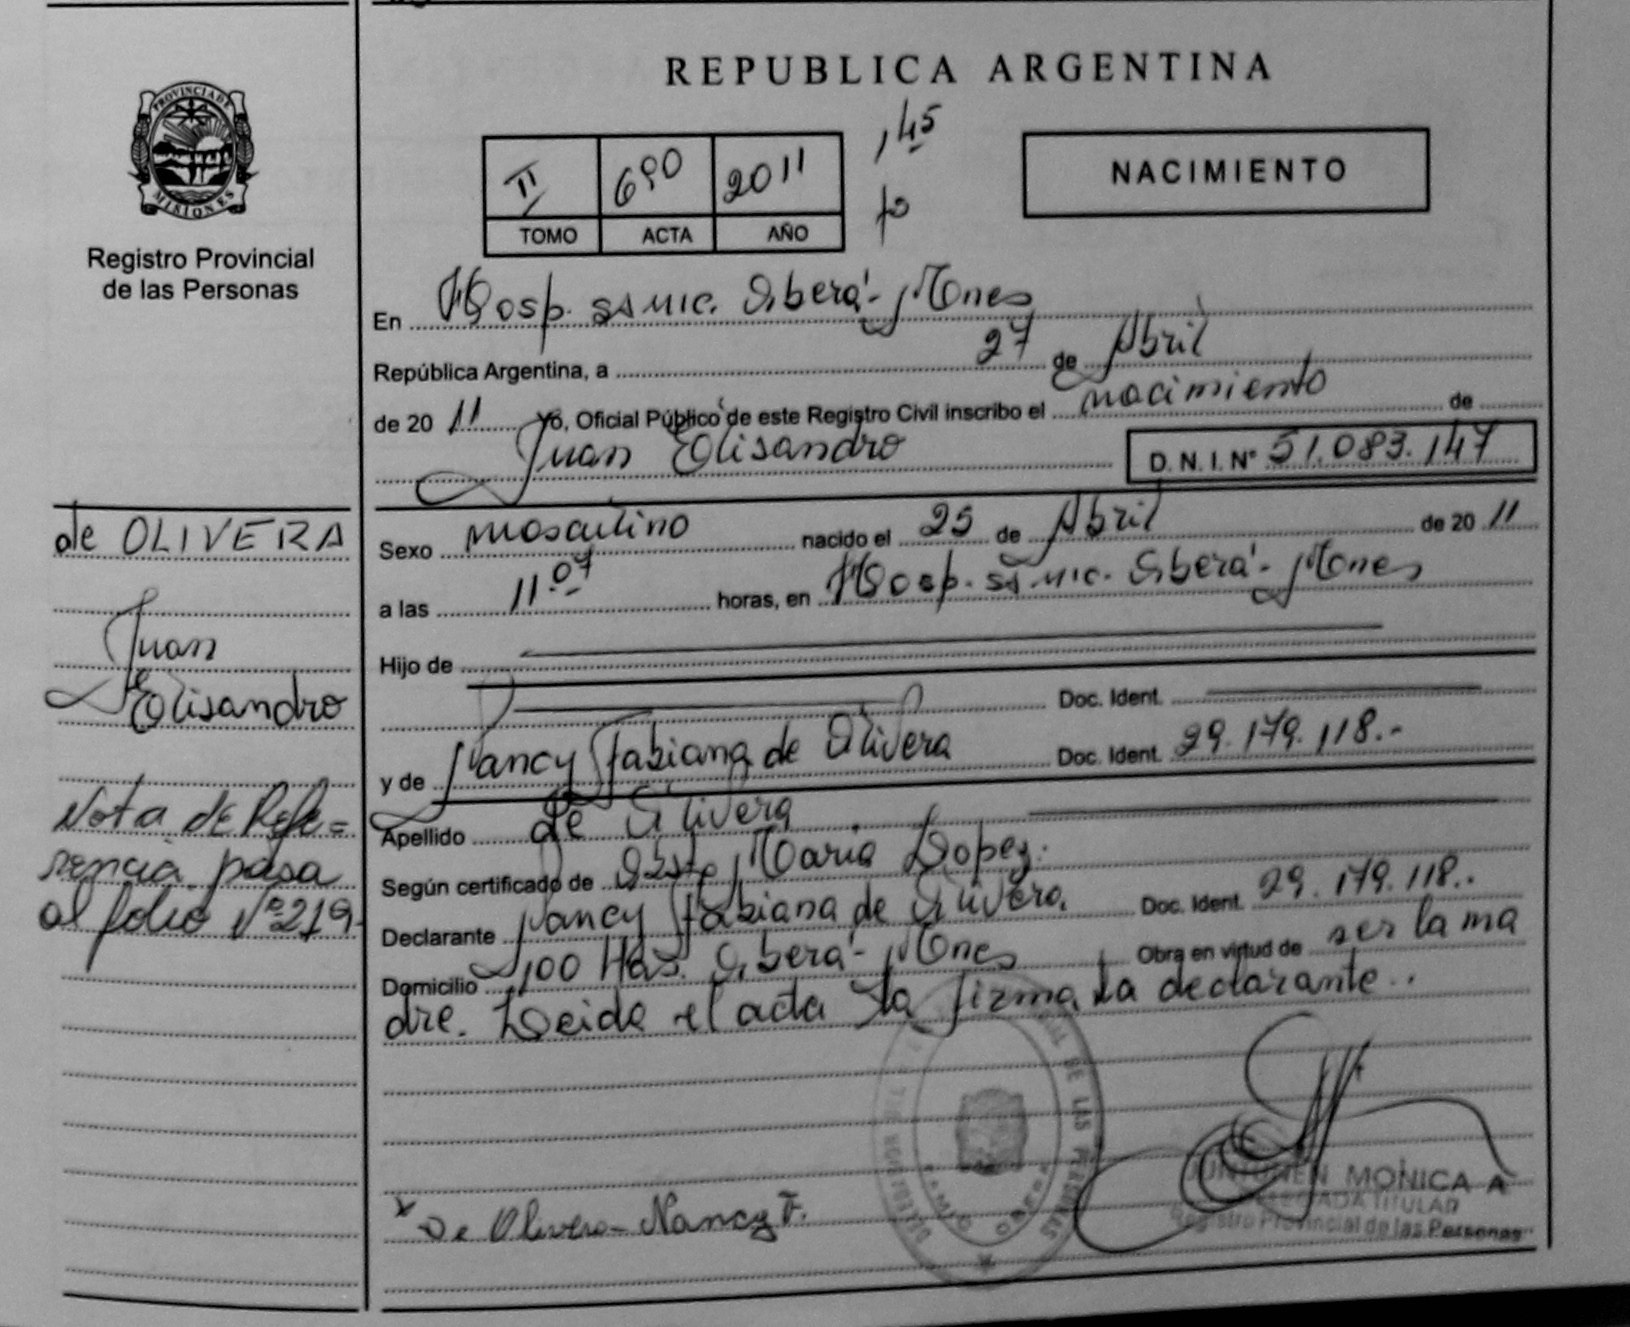 REPUBLICA ARGENTINA
PROVINCIA DE
MISIONES
Registro Provincial
de las Personas
II 690 2011
TOMO ACTA AÑO
145
fo
NACIMIENTO
En Hosp. SAMIC. Oberá - Mnes
República Argentina, a 27 de Abril
de 20 11 Yo, Oficial Público de este Registro Civil inscribo el nacimiento de
Juan Elisandro D.N.I. Nº 51.083.147
de OLIVERA
Juan
Elisandro
Nota de Refe=
rencia pasa
al folio Nº 219-
Sexo masculino nacido el 25 de Abril de 20 11
a las 11 07 horas, en Hosp. SAMIC. Oberá - Mnes
Hijo de
Doc. Ident.
y de Nancy Fabiana de Olivera Doc. Ident. 29.179.118.-
Apellido de Olivera
Según certificado de Obste, Maria Lopez.
Declarante Nancy Fabiana de Olivera. Doc. Ident. 29.179.118..
Domicilio 100 Has. Oberá - Mnes Obra en virtud de ser la ma
dre. Leida el acta la firma la declarante..
x De Olivera - Nancy F.
MONICA A
TITULAR
Registro Provincial de las Personas
DE LAS PERSONAS